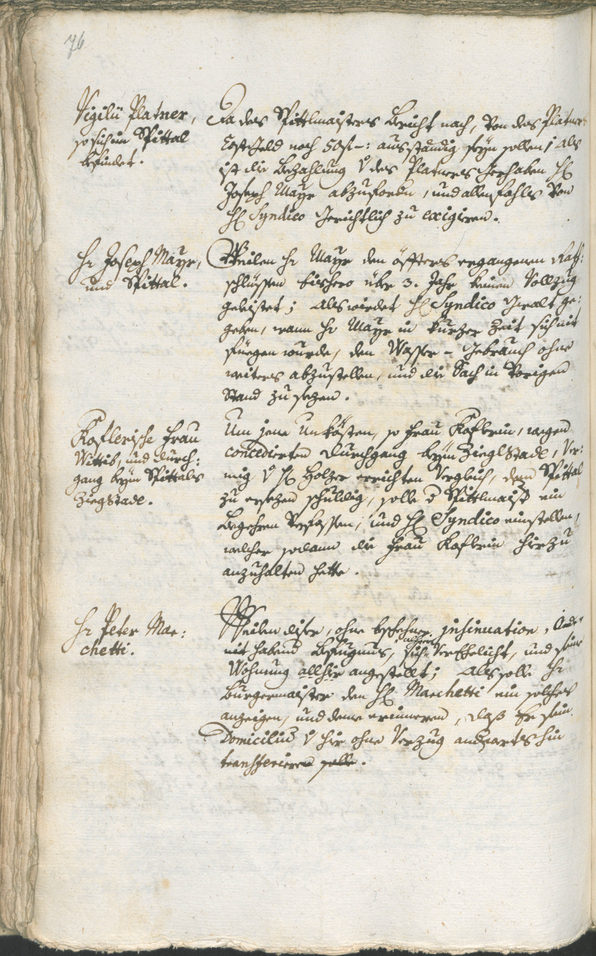 76
Vigilii Platner,
so sich im Spittal
befindet.
Da des Spittlmaisters Bericht nach, von des Platners
Cost Geld noch 50 f —: ausständig seyn sollen; als
ist die Bezahlung des Platners Gerhaben H:
Joseph Mayr abzufordern, und allenfahls von
H: Syndico Gerichtlich zu exigieren.
Hr Joseph Mayr,
und Spittal.
Weilen Hr Mayr den öffters ergangenen Rath:
schlüssen bishero über 3. Jahr keinen Vollzug
geleistet; Als würdet H: Syndico Gwalt ge:
geben, wann Hr Mayr in kurzer Zeit sich nit
fuegen wurde, den Wasser-Gebrauch ohne
weiters abzustellen, und die Sach in Vorigen
Stand zu sezen.
Koflerische Frau
Wittib, und durch:
gang beym Spittals
Ziegl Stadl.
Um jene Unkösten, so Frau Koflerin, wegen
concedierten Durchgang beym Ziegl Stadl, Ver:
mög H: Holzer errichten Verglich, dem Spittal
zu ersezen schuldig, solle Spittlmaister ein
Begehren verfassen, und H: Syndico einstellen,
welcher sodann die Frau Koflerin hierzu
anzuhalten hette.
Hr Peter Mar:
chetti.
Weilen diser, ohne beschehner insinuation,
nit habend Befuegnus, sich Verehelicht, und seine
Wohnung allhier angestellt; Als solle Hr
Burgermaister dem H: Marchetti ein solches
anzeigen, und deme erinneren, daß Er sein
Domicilium hie ohne Verzug anderwerts hin
transferieren solle.